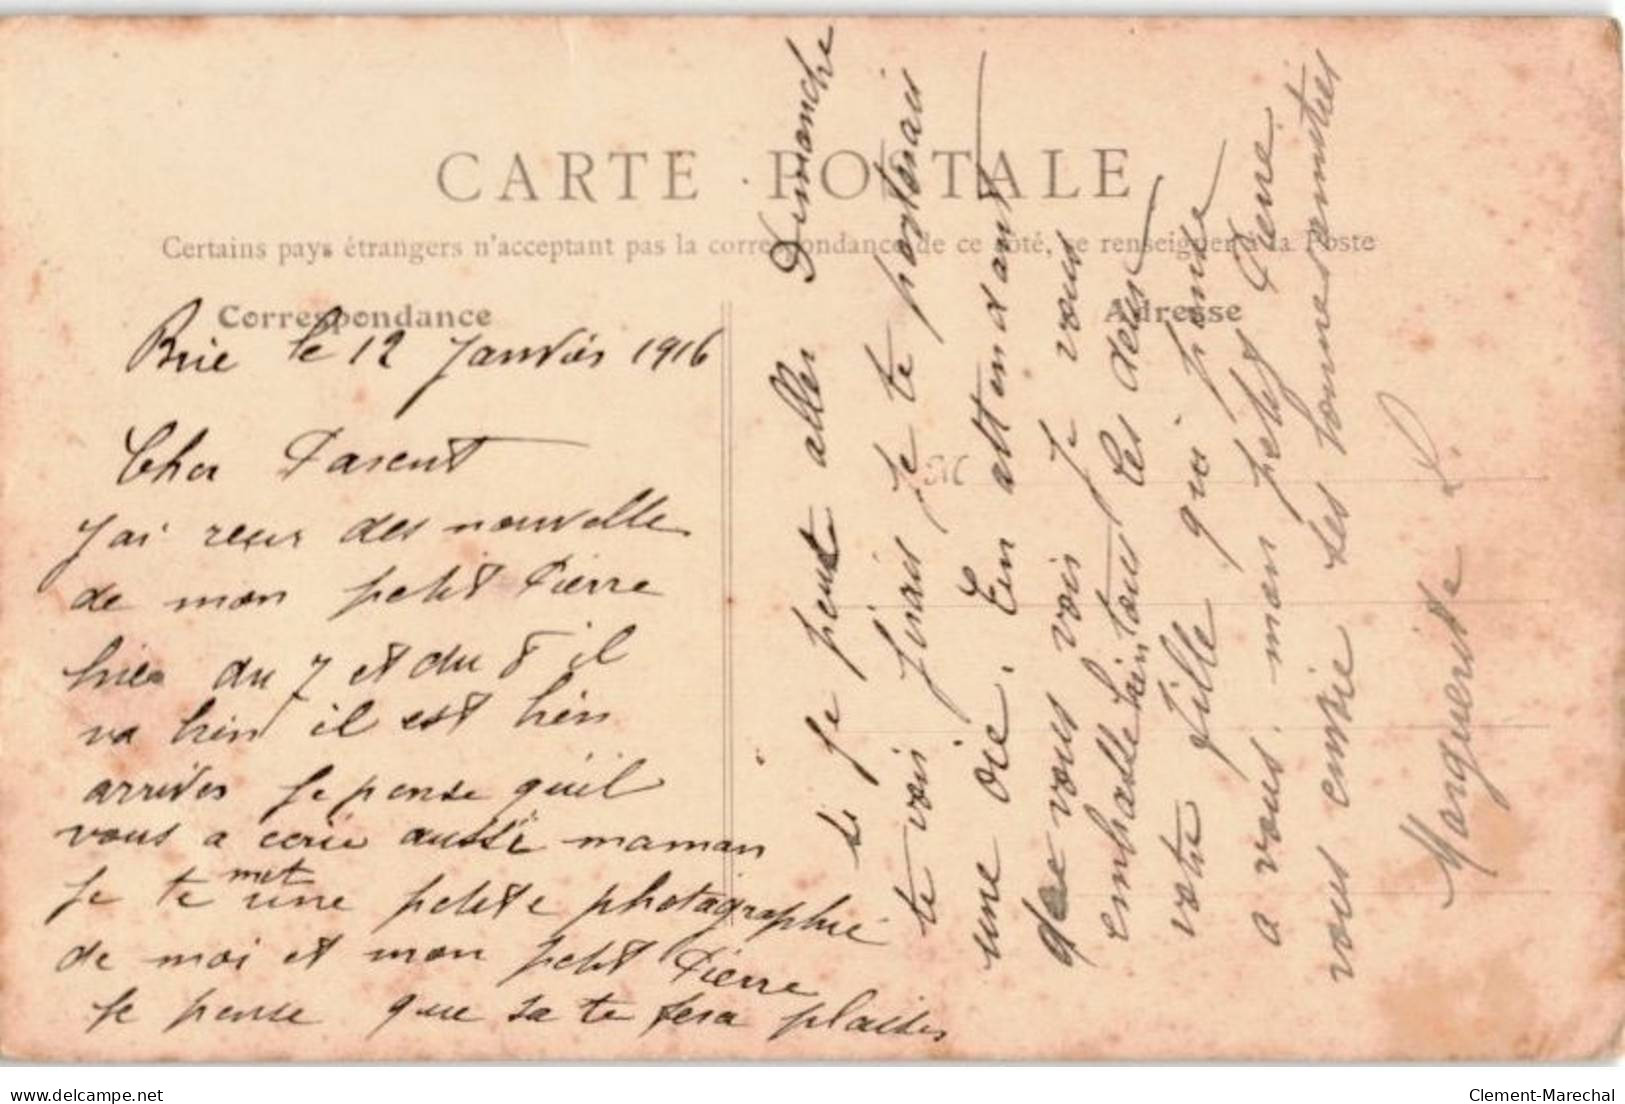 CARTE POSTALE
Certains pays étrangers n'acceptant pas la correspondance de ce côté, se renseigner à la Poste
Correspondance
Adresse
Brie le 12 Janvier 1916
Cher Parent
J'ai recus des nouvelle
de mon petit Pierre
hier du 7 et du 8 il
va bien il est bien
arrives Je pense quil
vous a ecrie aussi maman
Je te met une petite photographié
de moi et mon petit Pierre
Je pense que sa te fera plaisir
se je peut aller Dimanche
te voir Jirais Je te porterais
une oie. En attendant
de vous voir Je vous
embrasse bien tous les deus
votre fille qui pense
a vous. mon petit Pierre
vous envoie ses bonnes amitiés
Marguerite L.
delcampe.net
Clement-Marechal